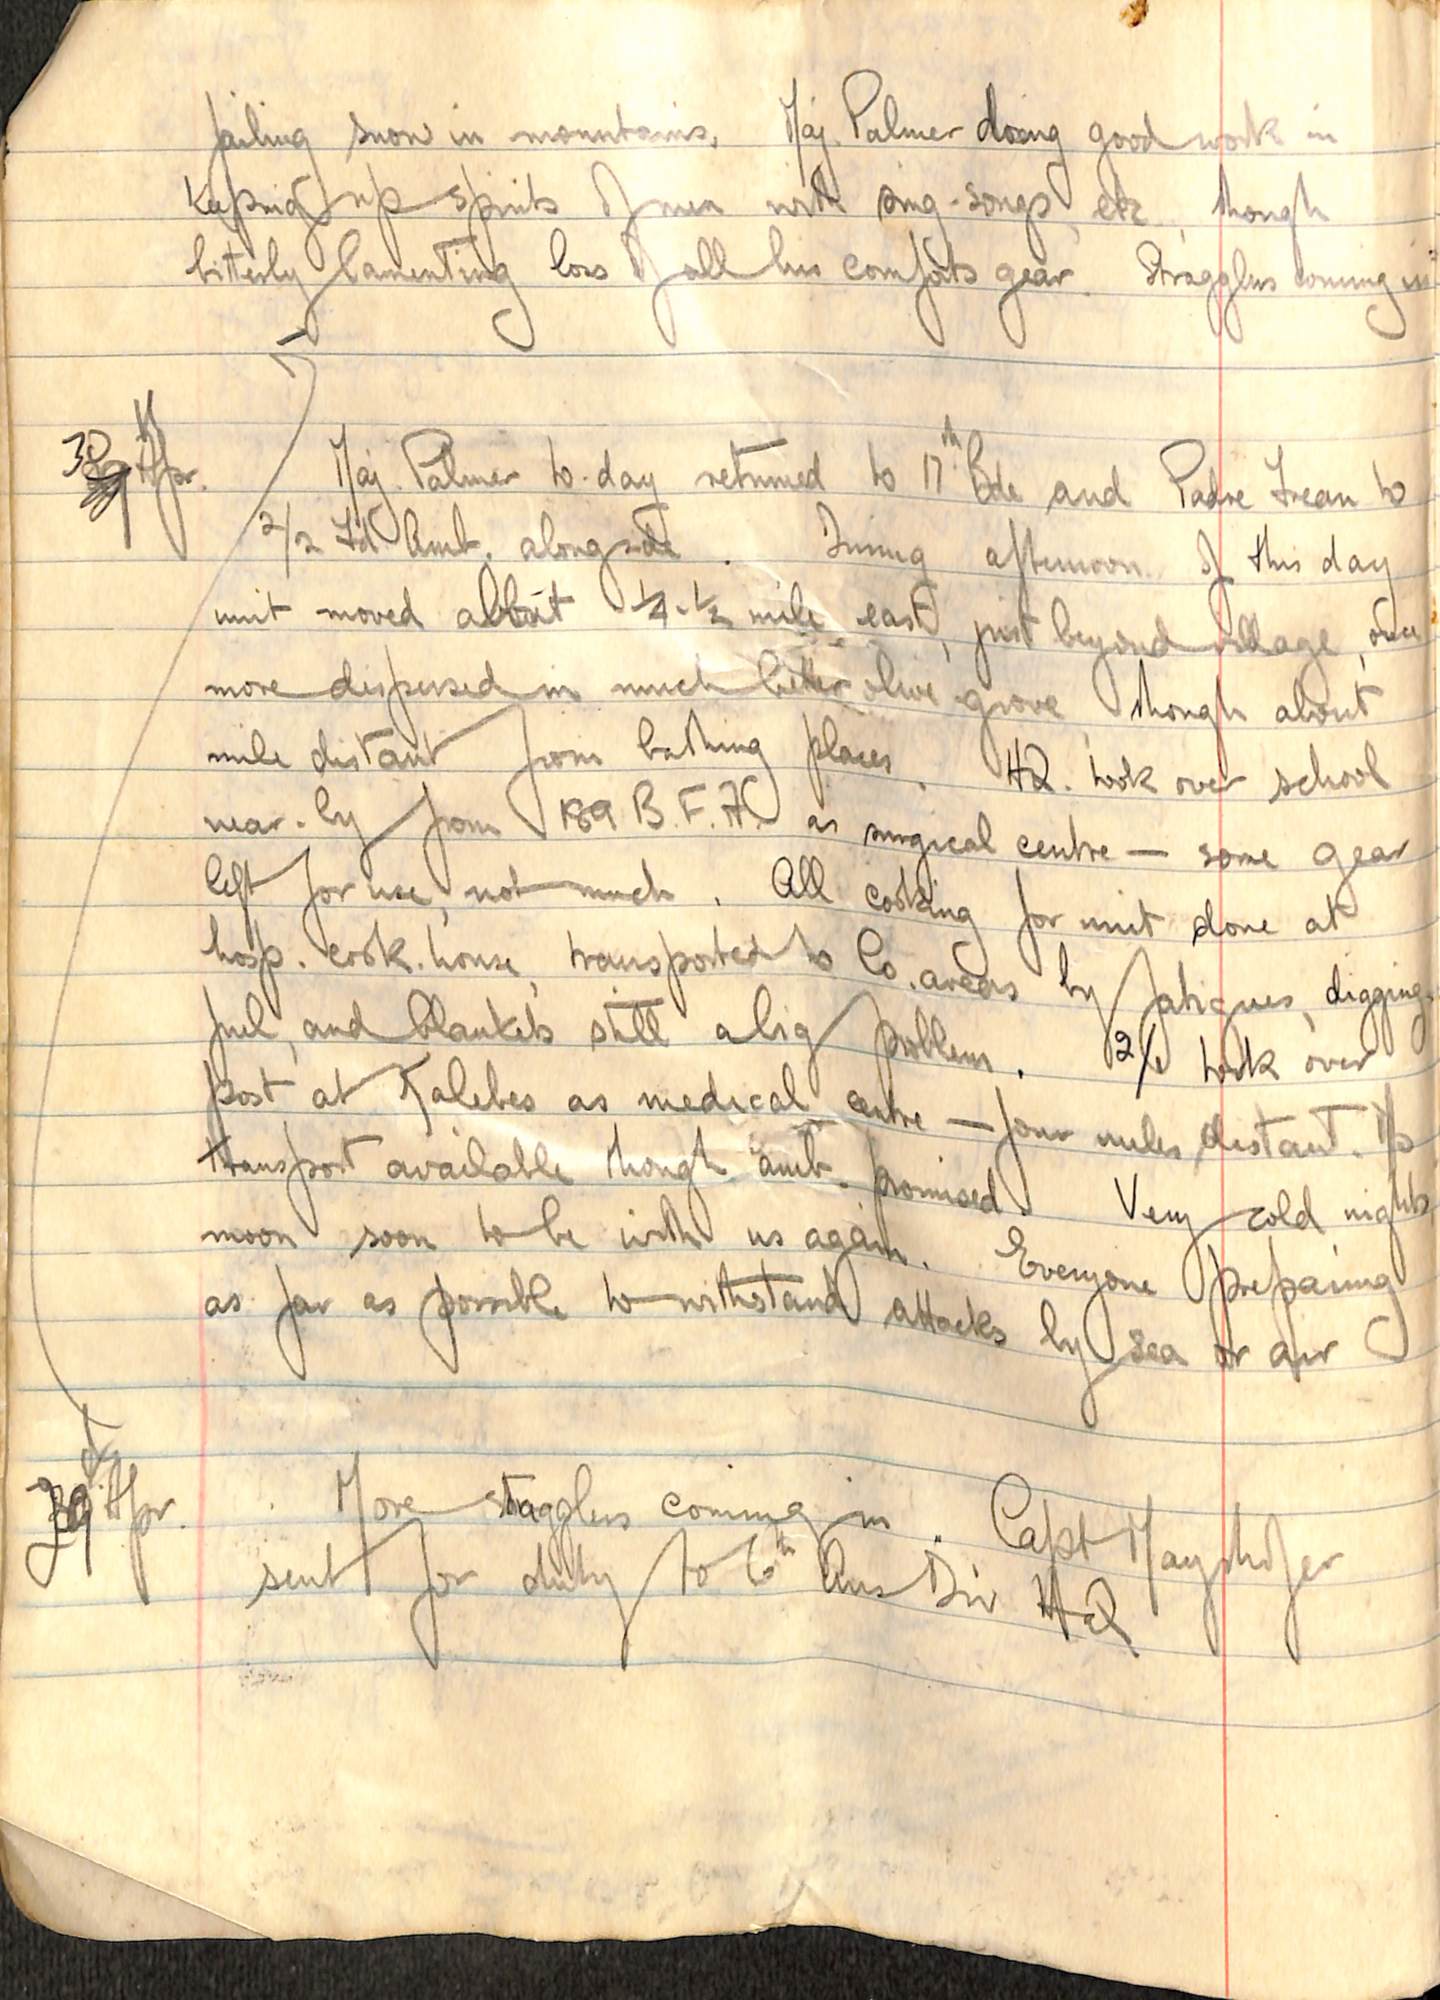 failing snow in mountains. Maj. Palmer doing good work in
keeping up spirits of men with sing-songs, etc, though
bitterly lamenting loss of all his comforts gear. Stragglers coming in
30th Apr. Maj. Palmer to-day returned to 17th Bde and Padre Trean to
2/2 Fd Amb. alongside. During afternoon of this day
unit moved about 1/4-1/2 mile east, just beyond village, once
more dispersed in much better olive grove, though about
mile distant from bathing places. HQ. took over school
near-by from 189 B.F.A. as surgical centre — some gear
left for use, not much. All cooking for unit done at
hosp. cook-house, transported to Co. areas by fatigues, digging,
fuel, and blankets still a big problem. 2/1 took over
post at Kalebes as medical centre — four miles distant. No
transport available though amb. promised. Very cold nights,
moon soon to be with us again. Everyone preparing
as far as possible to withstand attacks by sea or air
29th Apr. More stragglers coming in. Capt Mayrhofer
sent for duty to 6th Aus Div HQ